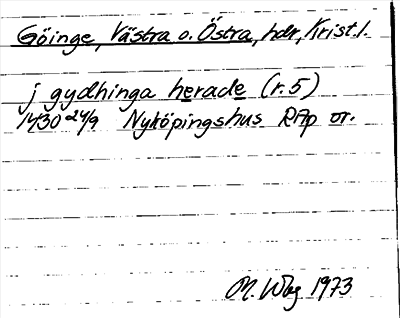 Göinge, Västra o. Östra, hdr, Krist. l.
j gydhinga herade (r. 5)
1430 24/9 Nyköpingshus RAp or.
M. Wbg 1973